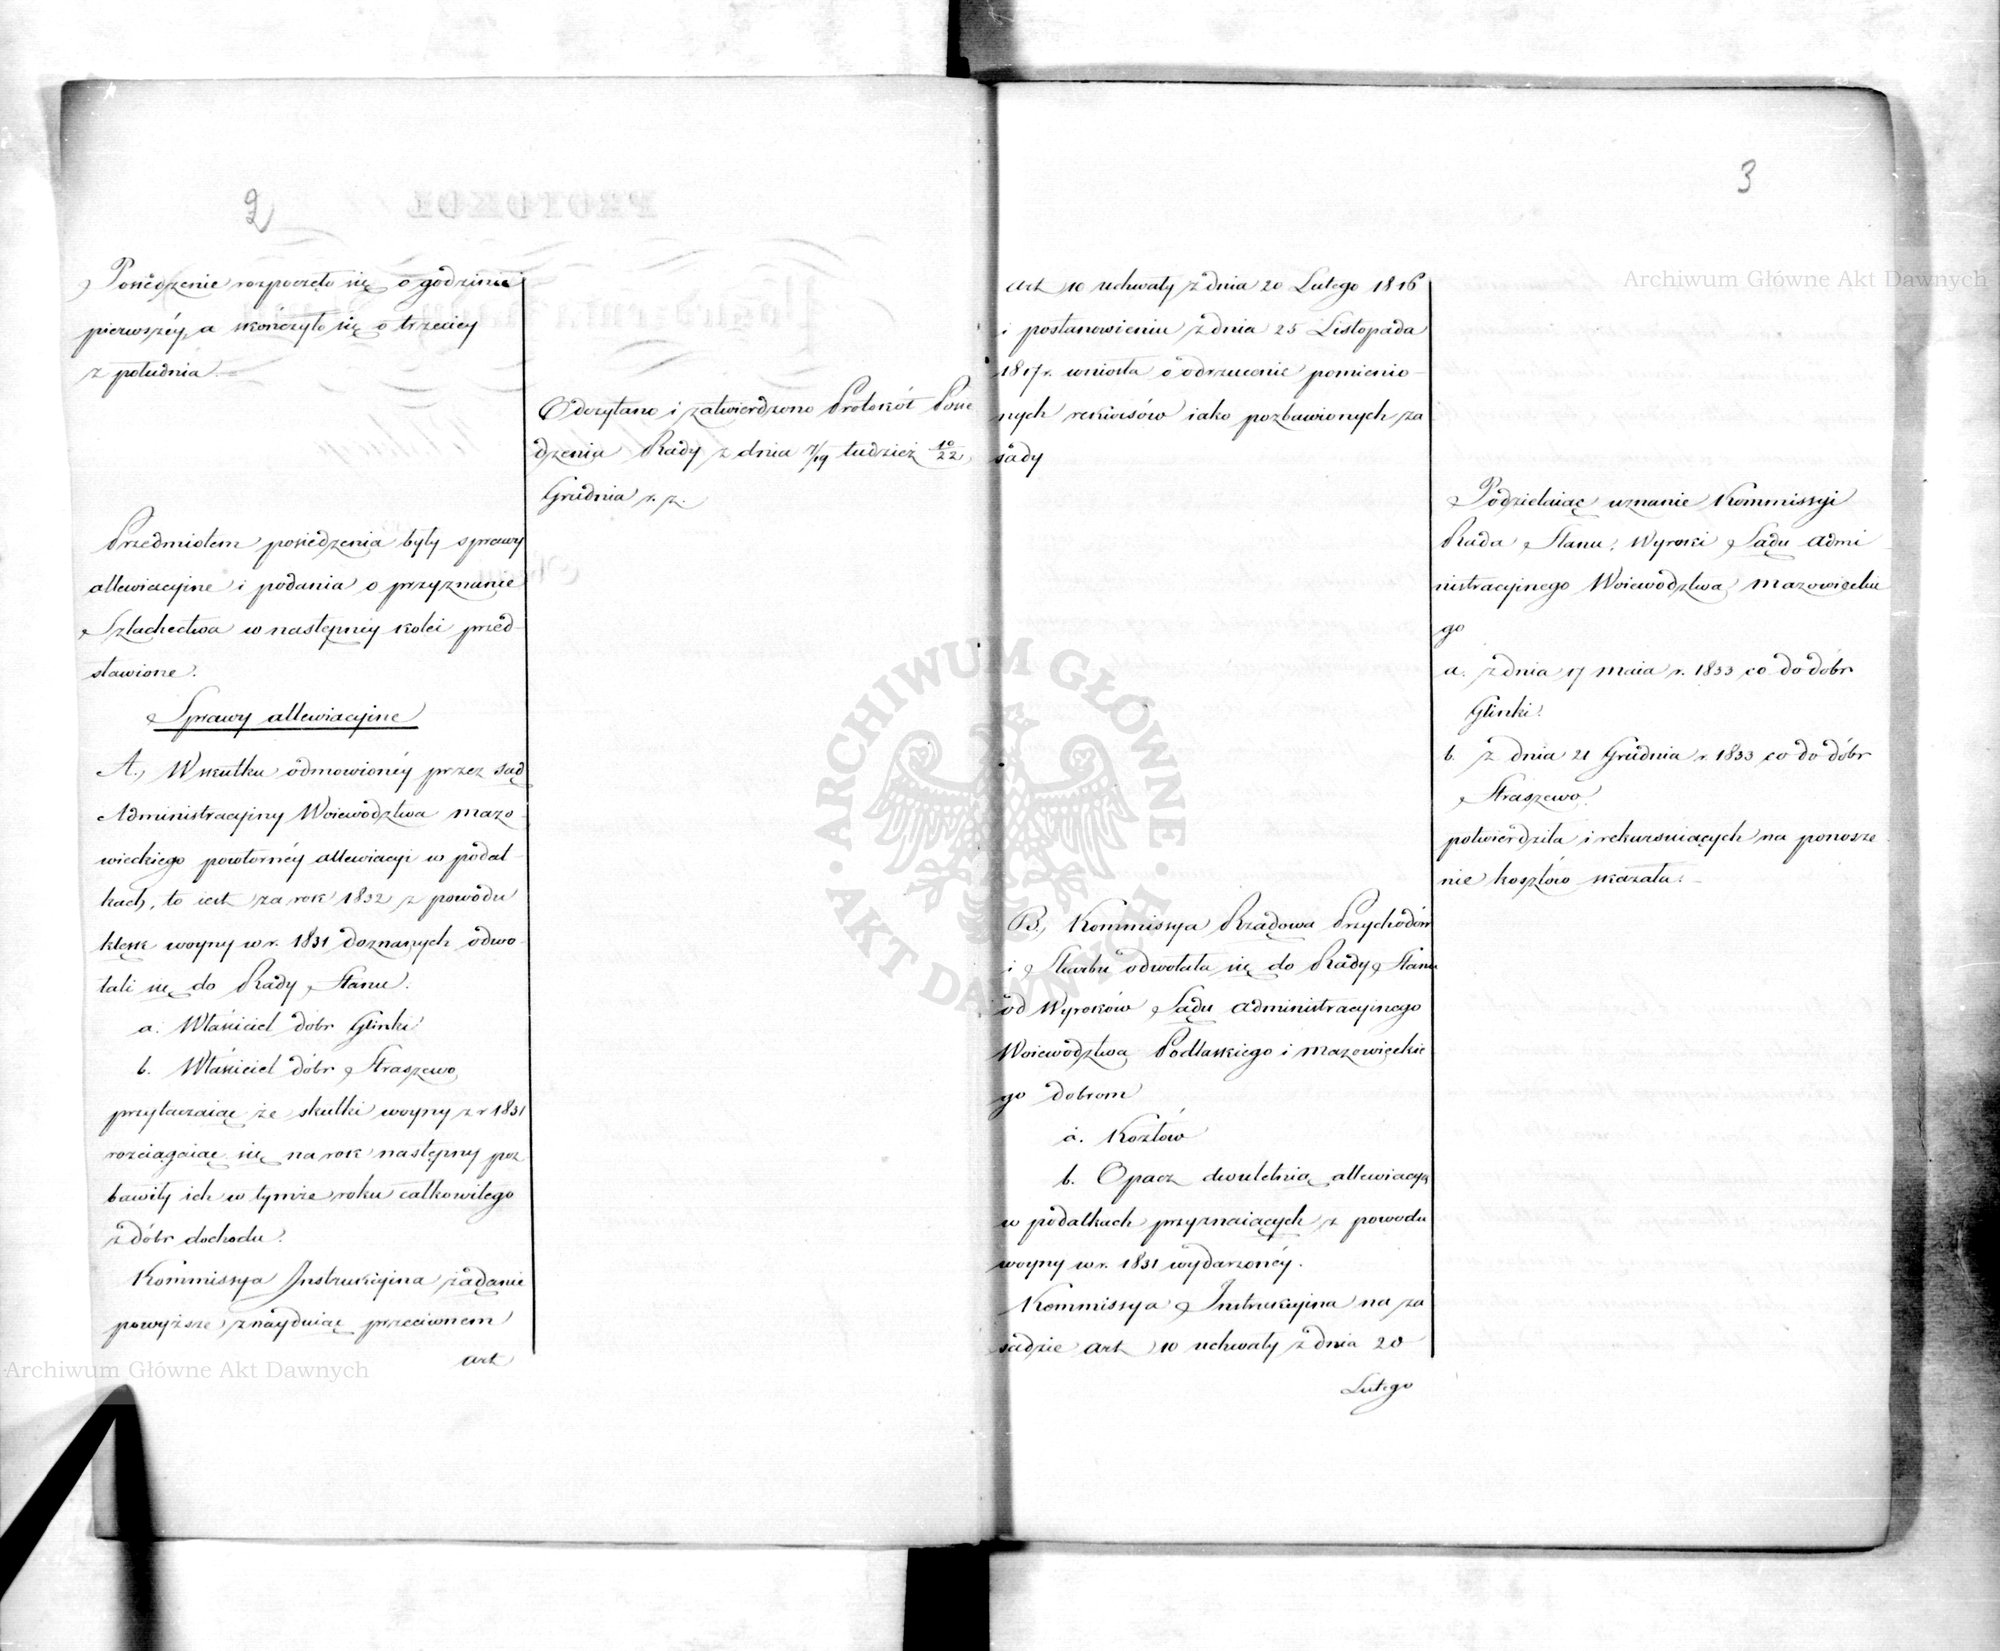 2
Posiedzenie rozpoczęło się o godzinie
pierwszéy, a skończyło się o trzeciey
z południa.
Odczytano i zatwierdzono Protokół Posie
dzenia Rady z dnia 7/19 tudzież 10/22
Grudnia r. z.
Przedmiotem posiedzenia były sprawy
allewiacyjne i podania o przyznanie
Szlachectwa w następnéy kolei przed-
stawione.
Sprawy allewiacyjne
A., W skutku odmowionéy przez Sąd
Administracyjny Woiewództwa Mazo-
wieckiego powtornéy allewiacyi w podat-
kach, to iest za rok 1832 z powodu
klęsk woyny w r. 1831 doznanych odwo-
łali się do Rady Stanu.
a. Właściciel dóbr Glinki
b. Właściciel dóbr Straszewo
przytaczaiąc że skutki woyny z r 1831
rozciągaiąc się na rok następny poz
bawiły ich w tymże roku całkowitego
z dóbr dochodu.
Kommissya Instrukcyjna żądanie
powyższe znayduiąc przeciwnem
art
3
art 10 uchwały z dnia 20 Lutego 1816
i postanowieniu z dnia 25 Listopada
1817 r. wniosła o odrzucenie pomienio-
nych rekursów iako pozbawionych za
sady
Podzielaiąc uznanie Kommissyi
Rada Stanu, Wyroki Sądu Admi
nistracyjnego Woiewództwa Mazowieckie
go
a. z dnia 17 Maia r. 1833 co do dóbr
Glinki.
b. z dnia 21 Grudnia r. 1833 co do dóbr
Straszewo
potwierdziła i rekursuiących na ponosze
nie kosztów skazała.
B., Kommissya Rządowa Przychodów
i Skarbu odwołała się do Rady Stanu
od Wyroków Sądu Administracyjnego
Woiewództwa Podlaskiego i Mazowieckie
go dobrom
a. Kozłów
b. Opacz dwuletnią allewiacyą
w podatkach przyznaiących z powodu
woyny w r. 1831 wydarzonéy.
Kommissya Instrukcyjna na za
sadzie art 10 uchwały z dnia 20
Lutego
Archiwum Główne Akt Dawnych
Archiwum Główne Akt Dawnych
ARCHIWUM GŁÓWNE · AKT DAWNYCH ·